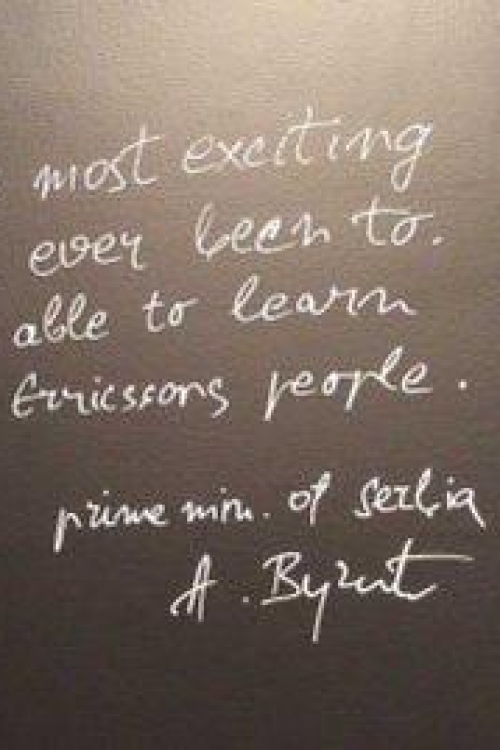 most exciting
ever been to.
able to learn
Erricssons people.
prime min. of Serbia
A.